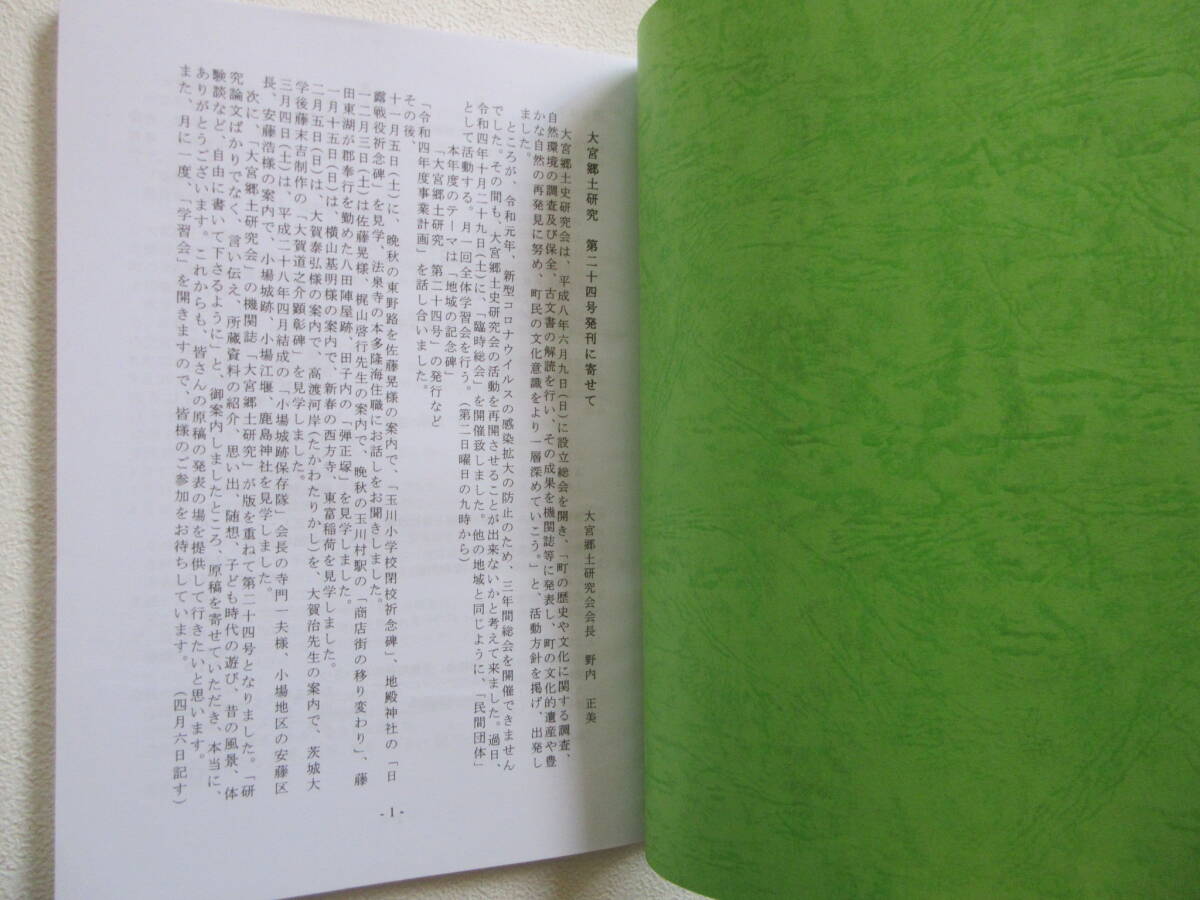 大宮郷土研究 第二十四号発刊に寄せて
大宮郷土研究会会長 野内 正美
大宮郷土史研究会は、平成八年六月九日(日)に設立総会を開き、「町の歴史や文化に関する調査、
自然環境の調査及び保全、古文書の解読を行い、その成果を機関誌等に発表し、町の文化的遺産や豊
かな自然の再発見に努め、町民の文化意識をより一層深めていこう。」と、活動方針を掲げ、出発し
ました。
ところが、令和元年、新型コロナウイルスの感染拡大の防止のため、三年間総会を開催できません
でした。その間も、大宮郷土史研究会の活動を再開させることが出来ないかと考えて来ました。過日、
令和四年十月二十九日(土)に、「臨時総会」を開催致しました。他の地域と同じように、「民間団体」
として活動する。月一回全体学習会を行う。(第二日曜日の九時から)
本年度のテーマは「地域の記念碑」
「大宮郷土研究 第二十四号」の発行など
「令和四年度事業計画」を話し合いました。
その後、
十一月五日(土)に、晩秋の東野路を佐藤晃様の案内で、「玉川小学校閉校祈念碑」、地殿神社の「日
露戦役祈念碑」を見学、法泉寺の本多隆海住職にお話しをお聞きしました。
一二月三日(土)は佐藤晃様、梶山啓行先生の案内で、晩秋の玉川村駅の「商店街の移り変わり」、藤
田東湖が郡奉行を勤めた八田陣屋跡、田子内の「弾正塚」を見学しました。
一月十五日(日)は、横山基明様の案内で、新春の西方寺、東富稲荷を見学しました。
二月五日(日)は、大賀泰弘様の案内で、高渡河岸(たかわたりかし)を、大賀治先生の案内で、茨城大
学後藤末吉制作の「大賀道之介顕彰碑」を見学しました。
三月四日(土)は、平成二十八年四月結成の「小場城跡保存隊」会長の寺門一夫様、小場地区の安藤区
長、安藤浩様の案内で、小場城跡、小場江堰、鹿島神社を見学しました。
次に、「大宮郷土研究会」の機関誌「大宮郷土研究」が版を重ねて第二十四号となりました。「研
究論文ばかりでなく、言い伝え、所蔵資料の紹介、思い出、随想、子ども時代の遊び、昔の風景、体
験談など、自由に書いて下さるように」と、御案内しましたところ、原稿を寄せていただき、本当に、
ありがとうございます。これからも、皆さんの原稿の発表の場を提供して行きたいと思います。
また、月に一度、「学習会」を開きますので、皆様のご参加をお待ちしています。(四月六日記す)
- 1 -